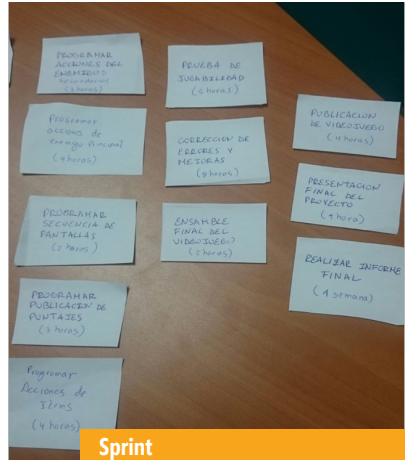 PROGRAMAR
ACCIONES DEL
ENEMIGO
Secundarios
(3 horas)
Programar
acciones de
enemigo Principal
(4 horas)
PROGRAMAR
SECUENCIA DE
PANTALLAS
(2 horas)
PROGRAMAR
PUBLICACION DE
PUNTAJES
(3 horas)
Programar
Acciones de
Items
(4 horas)
PRUEBA DE
JUGABILIDAD
(6 horas)
CORRECCION DE
ERRORES Y
MEJORAS
(8 horas)
ENSAMBLE
FINAL DEL
VIDEOJUEGO
(5 horas)
PUBLICACION
DE VIDEOJUEGO
(4 horas)
PRESENTACION
FINAL DEL
PROYECTO
(1 hora)
REALIZAR INFORME
FINAL
(1 semana)
Sprint